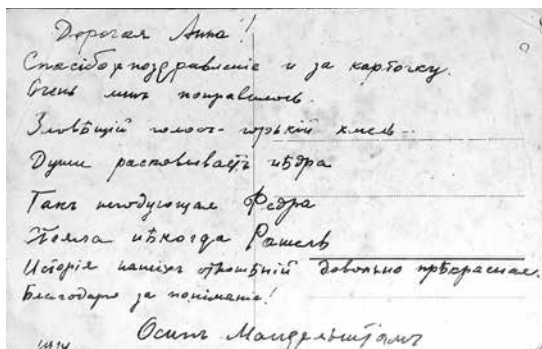 Дорогая Анна!
Спасібо поздравленіе и за карточку.
Очень мнѣ понравилось.
Зловѣщій голосъ – горькій хмель –
Души расковываетъ нѣдра
Такъ негодующая Федра
Стояла нѣкогда Рашель
Исторія нашихъ отношѣній довольно прѣкрасная.
Благодарю за пониманіе!
Осипъ Мандельштамъ